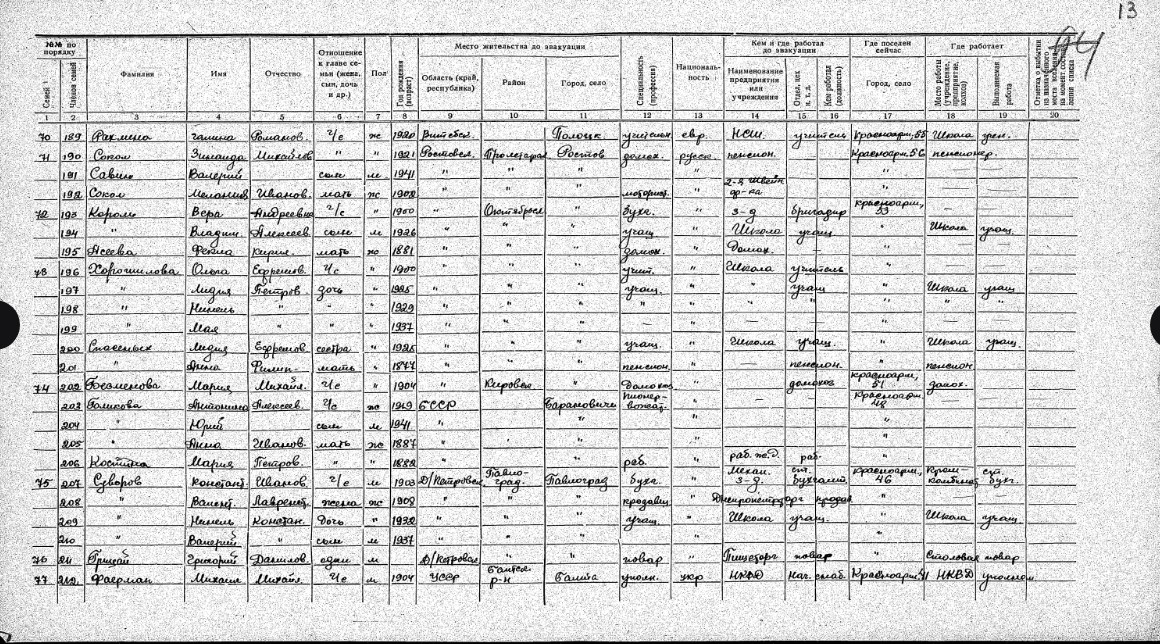 13
94
№№ по порядку
Семей
Членов семей
Фамилия
Имя
Отчество
Отношение к главе семьи (жена, сын, дочь и др.)
Пол
Год рождения (возраст)
Место жительства до эвакуации
Область (край, республика)
Район
Город, село
Специальность (профессия)
Национальность
Кем и где работал до эвакуации
Наименование предприятия или учреждения
Отдел, цех и т. д.
Кем работал (должность)
Где поселен сейчас
Город, село
Где работает
Место работы (учреждение, предприятие, колхоз)
Выполняемая работа
1 2 3 4 5 6 7 8 9 10 11 12 13 14 15 16 17 18 19 20
70 189 Рахмина Галина Романов. г/с ж 1920 Витебск. Полоцк учительн. евр. НСШ. учитель Красноарм, 55 Школа
71 190 Сокол Зинаида Михайлов " " 1921 Ростовск. Пролетарск Ростов домох. русск. пенсион. Красноарм. 56 пенсионер.
191 Савин Валерий сын м 1941 " " " " "
192 Сокол Мелания Иванов. мать ж 1902 " " " моторист. " 2-я швейн ф-ка "
72 193 Король Вера Андреевна г/с " 1900 " Октябрьск " бухг. " з-д бригадир красноарм, 53
194 " Владим. Алексеев сын м 1926 " " " учащ " Школа учащ " Школа учащ.
195 Асеева Фекла Кирил. мать ж 1881 " " " домох. " Домох. — "
73 196 Хорошилова Ольга Ефремов. г/с " 1900 " " " учит. " Школа учитель "
197 " Лидия Петров. дочь " 1925 " " " учащ. " " учащ " Школа учащ
198 " Нинель " " " 1929 " " " " " " " " " "
199 " Мая " " " 1937 " " " — " — — " — —
200 Спасеных Лидия Ефремов. сестра " 1925 " " " учащ. " Школа учащ. " Школа учащ.
201 " Анна Филип- мать " 1877 " " " пенсион. " — пенсион. " пенсион
74 202 Безменова Мария Михайл. г/с " 1904 " Кировск " Домохоз. " домохоз красноарм, 51 домох.
203 Голикова Антонина Алексеев. г/с ж 1919 БССР Барановичи пионер-вожат. " — — Красноарм. 48
204 " Юрий сын м 1941 " " "
205 " Анна Иванов. мать ж 1887 " " " " "
206 Мария Петров. " " 1882 " " " раб. " раб. ж.д. раб. "
75 207 Суворов Констант. Иванов. г/с м 1903 Д/Петровск Павлоград. Павлоград бухг. " Механ. з-д. ст. бухгалт. красноарм, 46 ст. бухг.
208 " Валент. Лаврент. жена ж 1908 " " " продавщ " Днепропетрторг продав "
209 " Нинель Констан. дочь " 1932 " " " учащ. " Школа учащ. " Школа учащ.
210 " Валерий " сын м 1937 " " " " "
76 211 Грицай Григорий Данилов. един м Д/Петровск " " повар " Пищеторг повар " Столовая повар
77 212 Фаерман Михаил Михайл. г/с м 1904 УССР Балтск. р-н Балта уполн. укр НКВД нач. снаб. Красноарм. 41 НКВД уполном